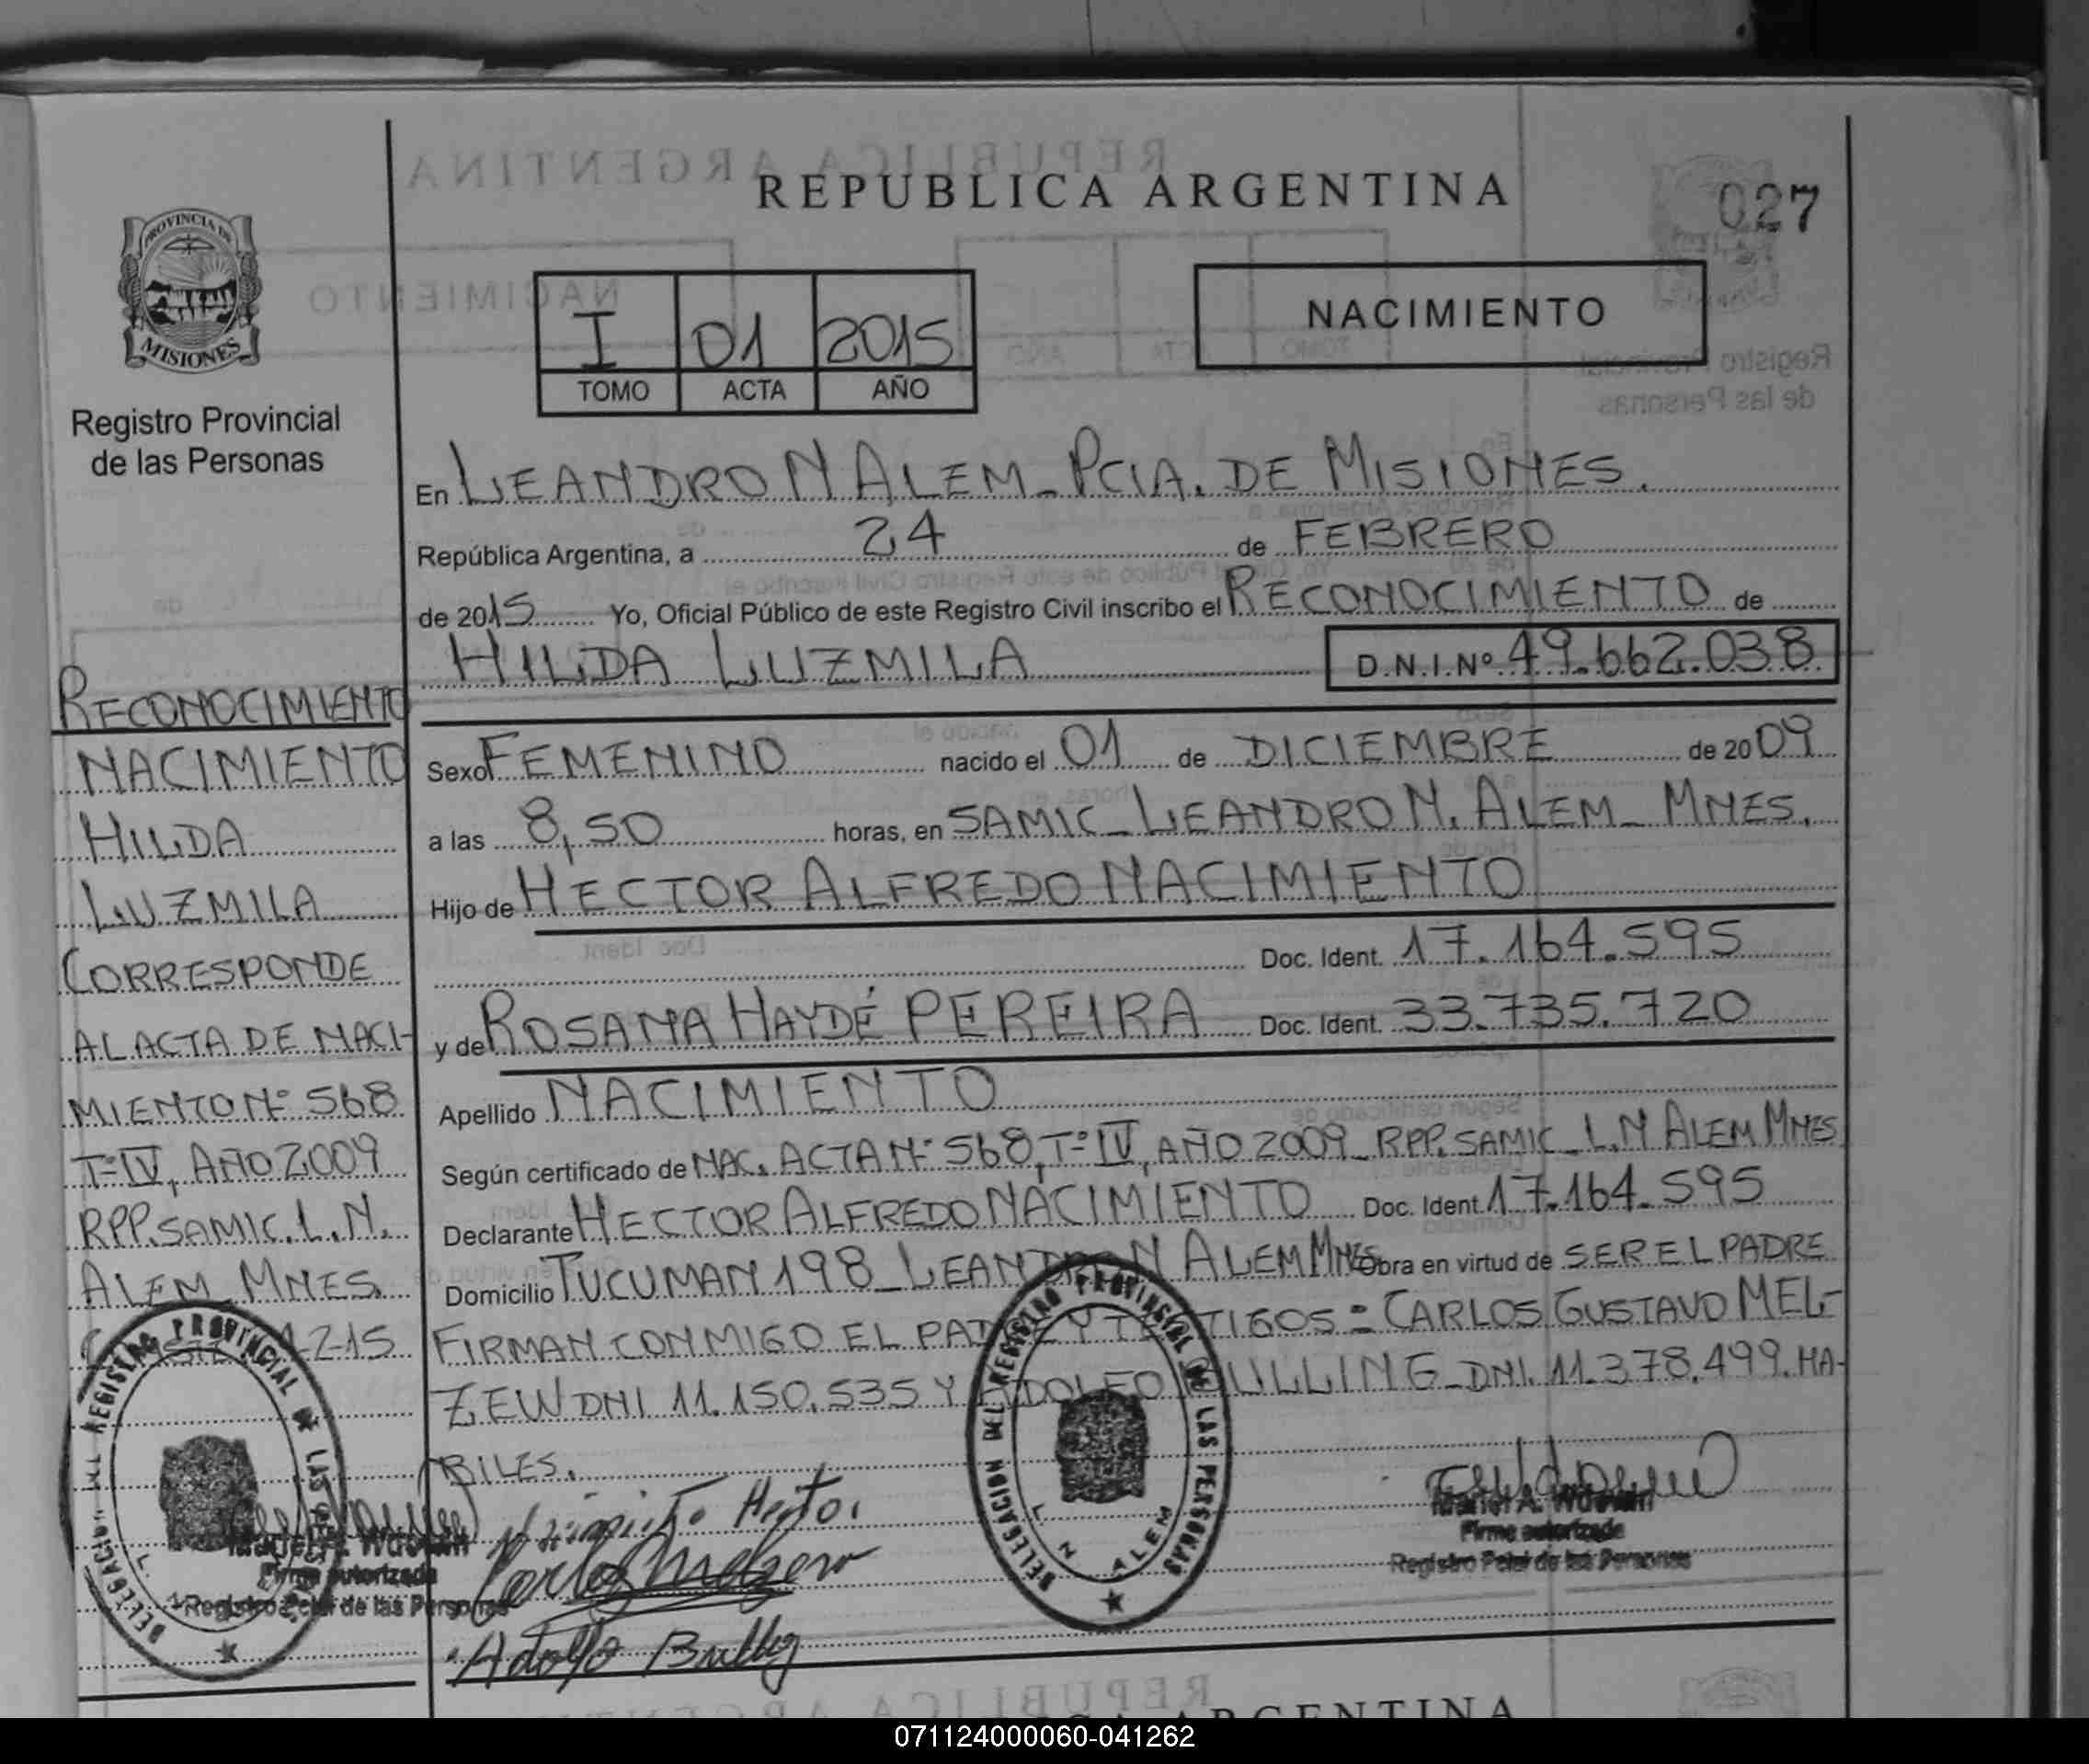 REPUBLICA ARGENTINA
027
PROVINCIA DE
MISIONES
Registro Provincial
de las Personas
I 01 2015
TOMO ACTA AÑO
NACIMIENTO
En LEANDRO N ALEM_PCIA. DE MISIONES.
República Argentina, a 24 de FEBRERO
de 2015 Yo, Oficial Público de este Registro Civil inscribo el RECONOCIMIENTO de
HILDA LUZMILA D.N.I.Nº 49.662.038
Sexo FEMENINO nacido el 01 de DICIEMBRE de 2009
a las 8,50 horas, en SAMIC_LEANDRO N. ALEM_MNES.
Hijo de HECTOR ALFREDO NACIMIENTO
Doc. Ident. 17.164.595
y de ROSANA HAYDÉ PEREIRA Doc. Ident. 33.735.720
Apellido NACIMIENTO
Según certificado de NAC. ACTA Nº 568, Tº IV, AÑO 2009_RPP. SAMIC_L.N ALEM MNES
Declarante HECTOR ALFREDO NACIMIENTO Doc. Ident. 17.164.595
Domicilio TUCUMAN 198_LEANDRO N ALEM MNES Obra en virtud de SER EL PADRE
FIRMAN CONMIGO EL PADRE Y TESTIGOS = CARLOS GUSTAVO MEL-
ZEW DNI 11.150.535 Y ADOLFO BULLING_DNI. 11.378.499. HA-
BILES.
RECONOCIMIENTO
NACIMIENTO
HILDA
LUZMILA
CORRESPONDE
AL ACTA DE NACI-
MIENTO Nº 568
Tº IV, AÑO 2009
RPP. SAMIC. L.N.
ALEM MNES.
DELEGACION DEL REGISTRO PROVINCIAL DE LAS PERSONAS
L N ALEM
Firma autorizada
Registro Pcial de las Personas
Nacimiento Hector
Carlos Melzew
Adolfo Bulling
DELEGACION DEL REGISTRO PROVINCIAL DE LAS PERSONAS
L N ALEM
Firma autorizada
Registro Pcial de las Personas
ARGENTINA
071124000060-041262